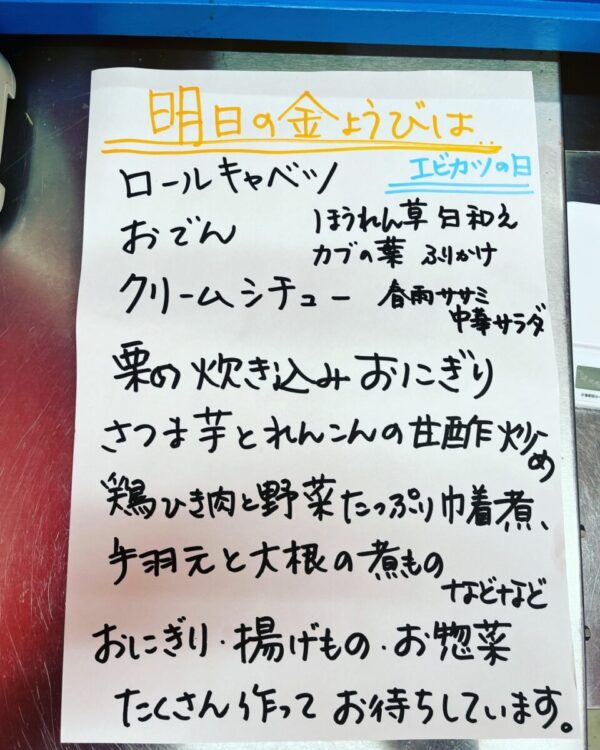 明日の金ようびは
エビカツの日
ロールキャベツ
おでん
ほうれん草白和え
カブの葉 ふりかけ
クリームシチュー
春雨ササミ
中華サラダ
栗の炊き込みおにぎり
さつま芋とれんこんの甘酢炒め
鶏ひき肉と野菜たっぷり巾着煮、
手羽元と大根の煮もの
などなど
おにぎり・揚げもの・お惣菜
たくさん作って お待ちしています。